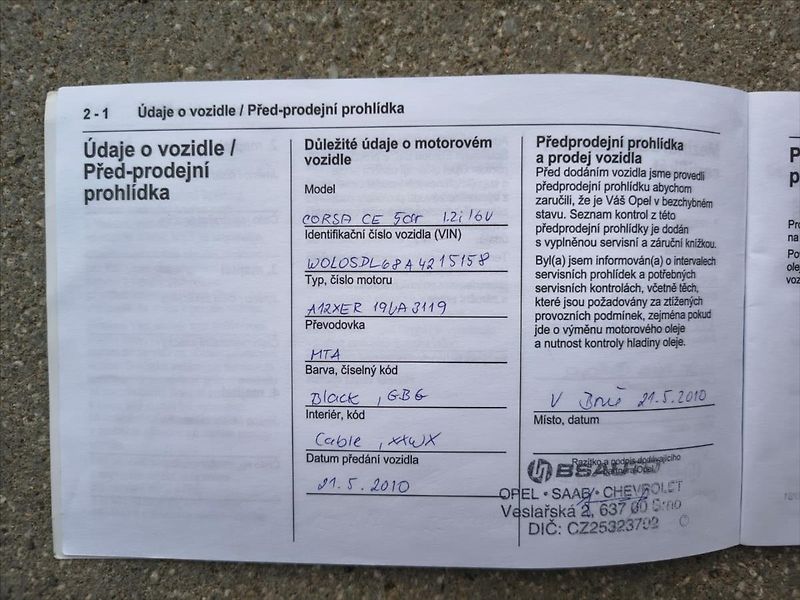 2 - 1 Údaje o vozidle / Před-prodejní prohlídka
Údaje o vozidle /
Před-prodejní
prohlídka
Důležité údaje o motorovém
vozidle
Model
CORSA CE 5dr 1.2i 16V
Identifikační číslo vozidla (VIN)
W0L0SDL68A4215158
Typ, číslo motoru
A12XER 19VA3119
Převodovka
MTA
Barva, číselný kód
Black, GBG
Interiér, kód
Cable, XXWX
Datum předání vozidla
21.5.2010
Předprodejní prohlídka
a prodej vozidla
Před dodáním vozidla jsme provedli
předprodejní prohlídku abychom
zaručili, že je Váš Opel v bezchybném
stavu. Seznam kontrol z této
předprodejní prohlídky je dodán
s vyplněnou servisní a záruční knížkou.
Byl(a) jsem informován(a) o intervalech
servisních prohlídek a potřebných
servisních kontrolách, včetně těch,
které jsou požadovány za ztížených
provozních podmínek, zejména pokud
jde o výměnu motorového oleje
a nutnost kontroly hladiny oleje.
V Brně 21.5.2010
Místo, datum
Razítko a podpis dodávajícího
partnera Opel
BSAUTO
OPEL • SAAB • CHEVROLET
Veslařská 2, 637 00 Brno
DIČ: CZ25323792